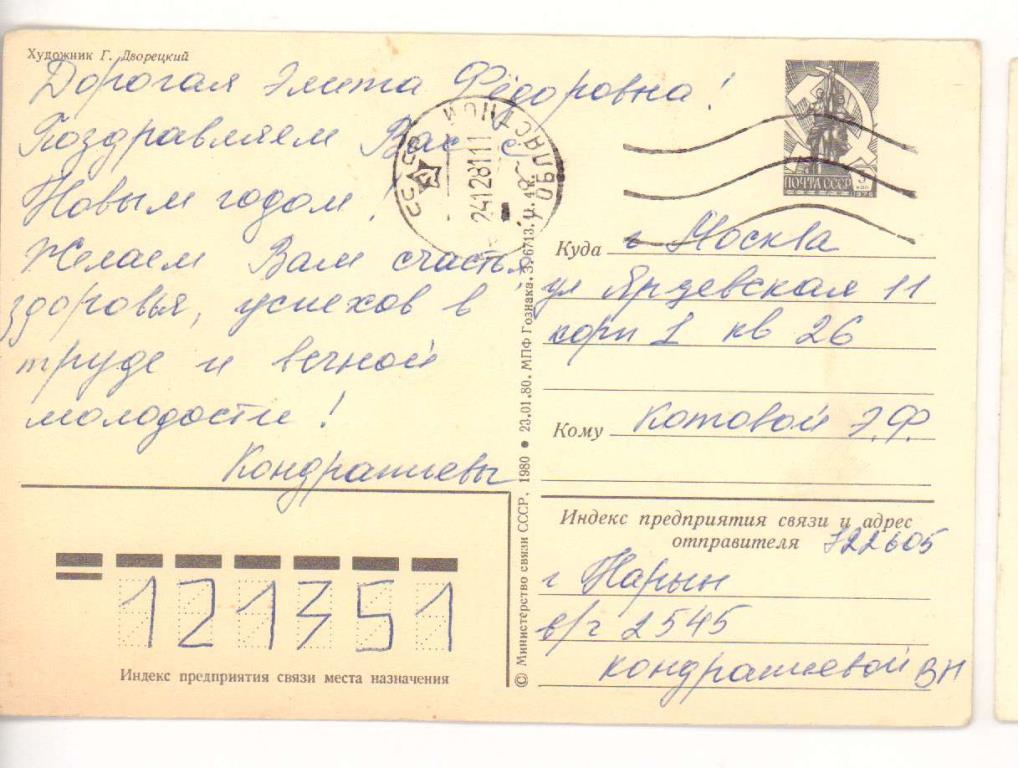 Художник Г. Дворецкий
Дорогая Элита Фёдоровна!
Поздравляем Вас с
Новым годом!
Желаем Вам счастья,
здоровья, успехов в
труде и вечной
молодости!
Кондратьевы
ПОЧТА СССР
1976
СССР
ОБЛАСТНОЙ
24128111
Куда г Москва
ул Ярцевская 11
корп 1 кв 26
Кому Котовой Э.Ф.
Индекс предприятия связи и адрес
отправителя 722605
г Нарын
в/ч 2545
Кондратьевой ВН
121351
Индекс предприятия связи места назначения
© Министерство связи СССР, 1980 • 23.01.80. МПФ Гознака. З. 6713. Ц. 4